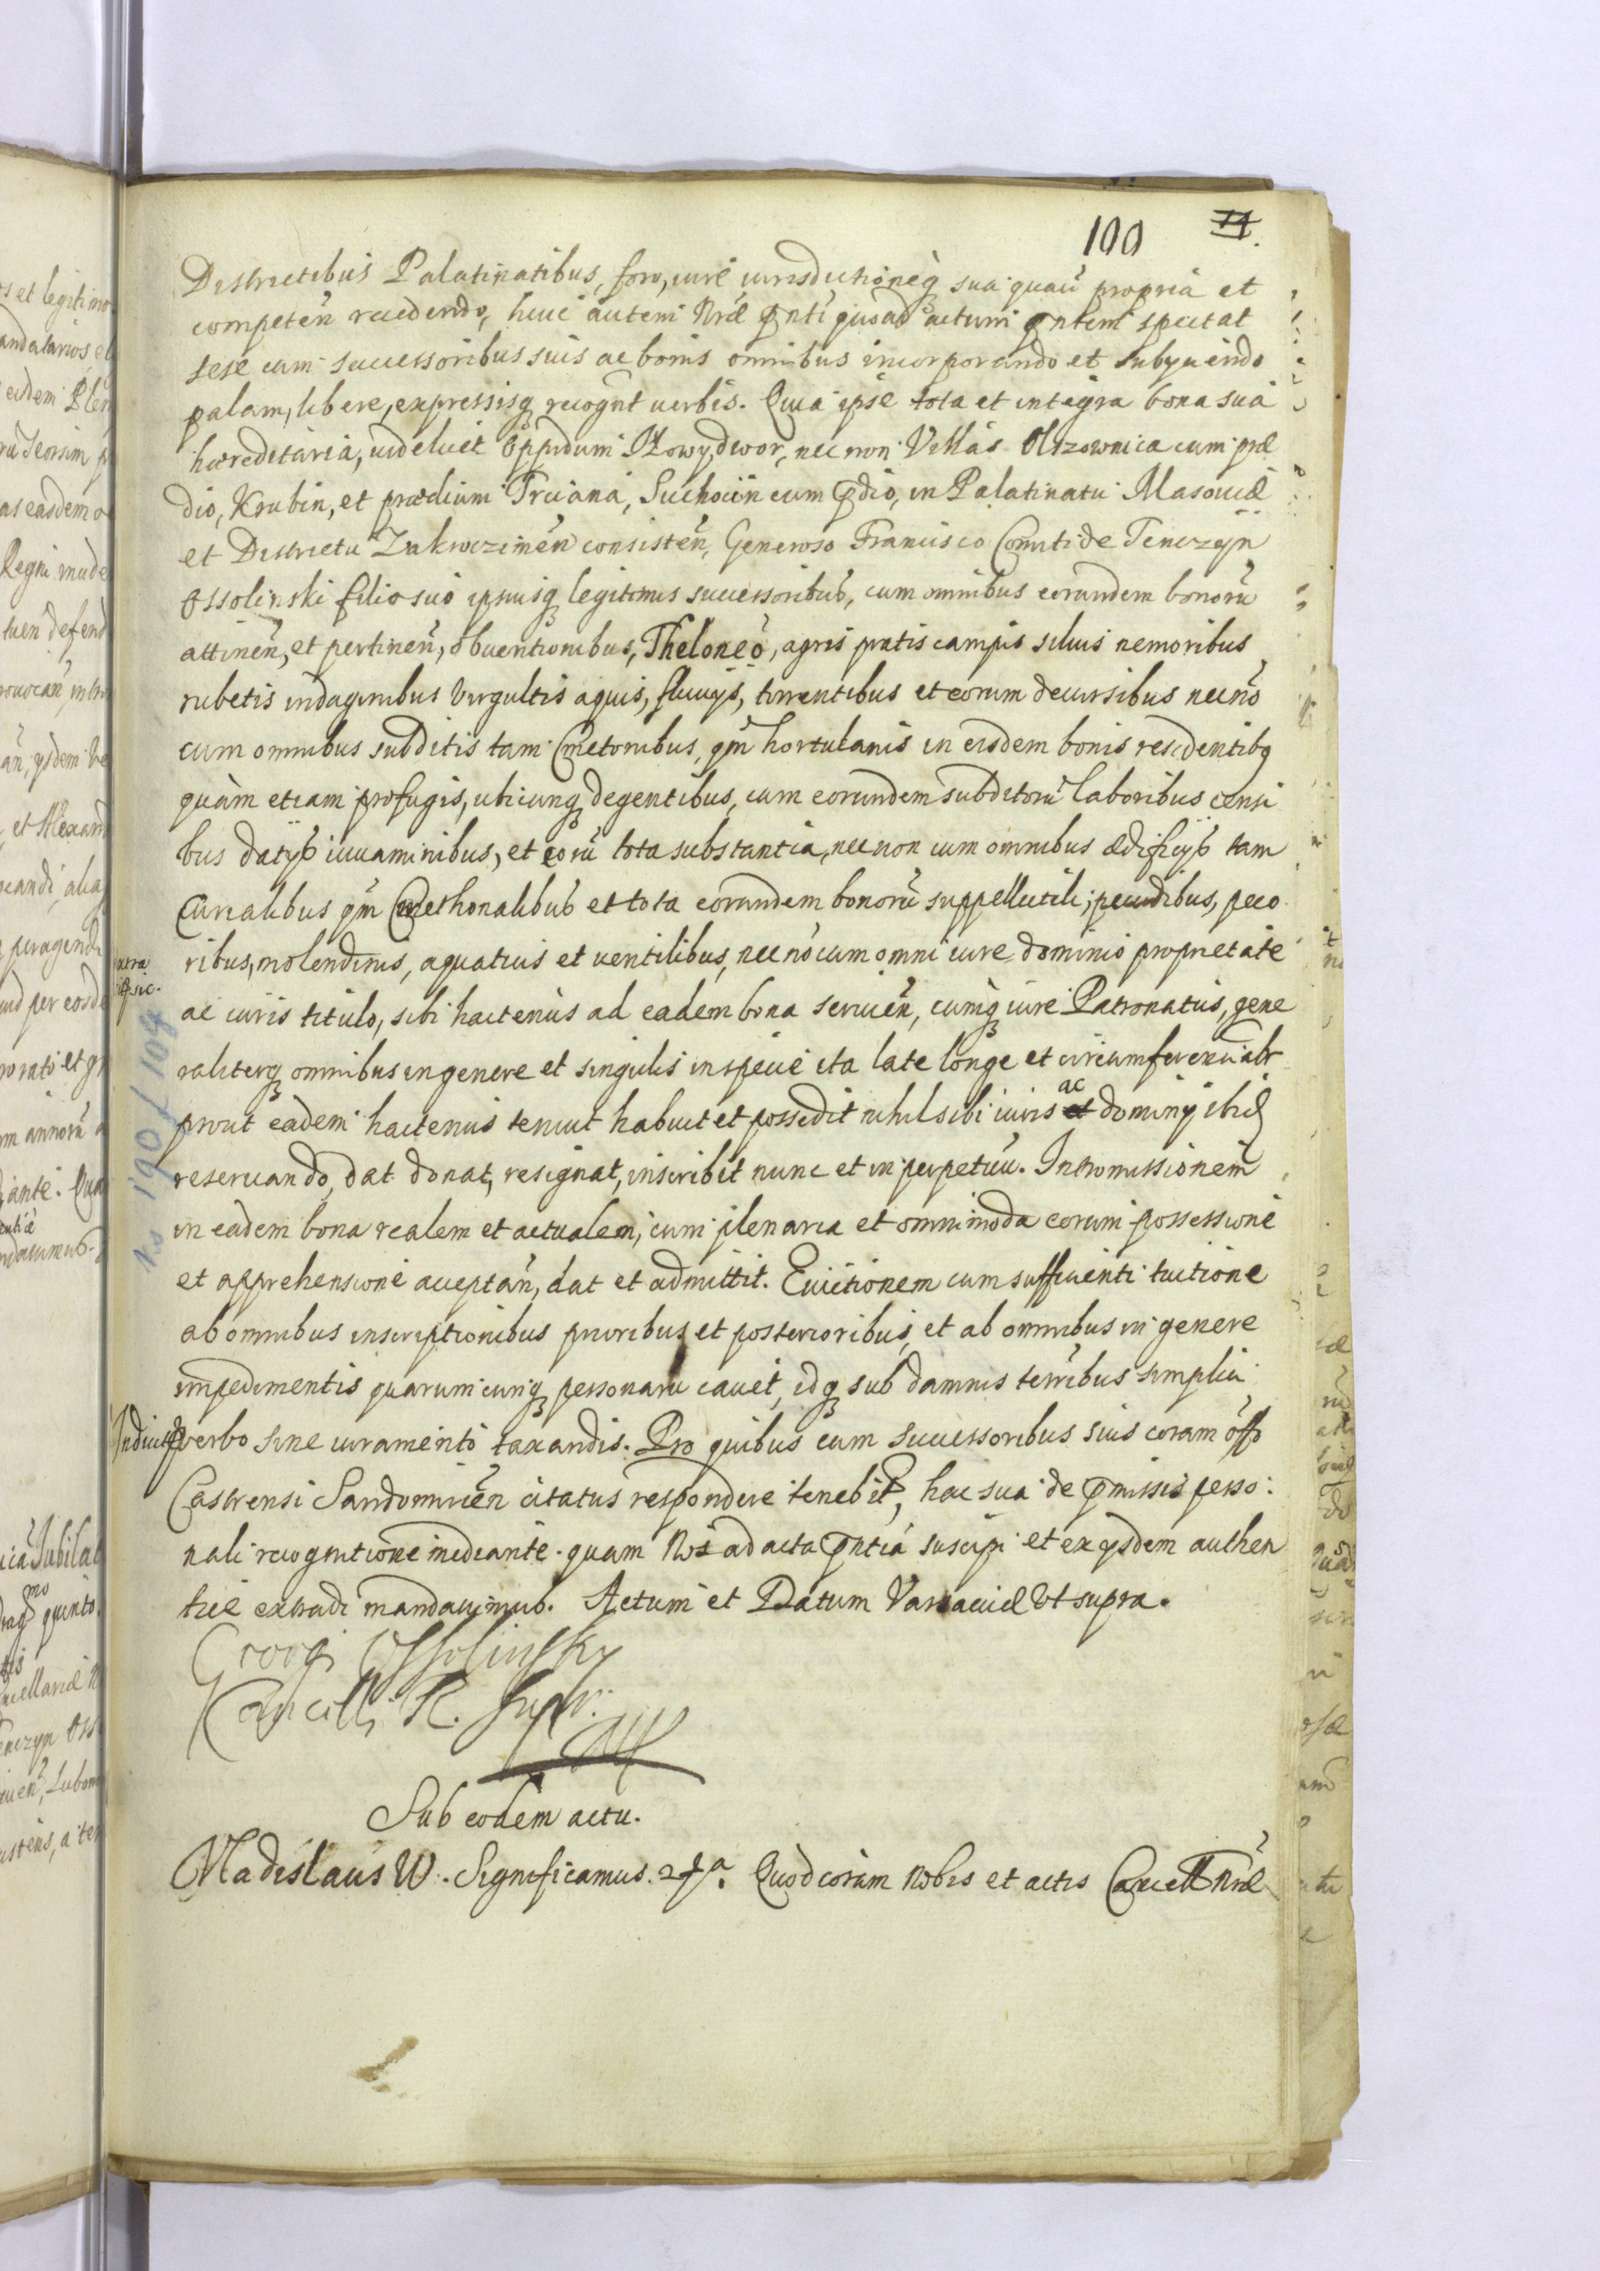 100 74.
Districtibus Palatinatibus, foro, iure iurisdictioneq sua quaũ propria et
competeñ recedendo, huic autem Nræ pnti quoad actum pntem spectat
sese cum successoribus suis ac bonis omnibus incorporando et subyciendo
palam, libere, expressisq recognt verbis. Quia ipse tota et integra bona sua
hæreditaria, videlicet Oppidum Nowydwor, nec non Villas Olszownica cum præ
dio, Krubin, et prædium Trciana, Suchocin cum pdio, in Palatinatu Masoviæ
et Districtu Zakroczimeñ consisteñ, Generoso Francisco Comiti de Tenczyn
Ossolinski filio suo ipsiusq legitimis successoribus, cum omnibus eorundem bonorũ
attineñ, et pertineñ, obventionibus, Theloneo, agris pratis campis silvis nemoribus
rubetis indaginibus virgultis aquis, fluvijs, torrentibus et eorum decursibus necnõ
cum omnibus subditis tam Cmetonibus, qm hortulanis in eisdem bonis residentibq
quàm etiam profugis, ubicunq degentibus, cum eorundem subditorũ laboribus censi
bus datijs iuvaminibus, et eorũ tota substantia, nec non cum omnibus ædificijs tam
Curialibus qm Cmethonalibus et tota eorundem bonorũ suppellectili; pecudibus, peco
ribus, molendinis, aquaticis et ventilibus, nec nõ cum omni iure dominio proprietate
ac iuris titulo, sibi hactenus ad eadem bona servieñ, cumq iure Patronatus, gene
raliterq omnibus in genere et singulis in specie ita late longe et circumferencialr
prout eadem hactenus tenuit habuit et possedit nihil sibi iuris et ac dominij ibid
reservando, dat donat, resignat, inscribit nunc et in perpetuũ. Intromissionem
in eadem bona realem et actualem, cum plenaria et omnimoda eorum possessione
et apprehensione acceptañ, dat et admittit. Evictionem cum sufficienti tuitione
ab omnibus inscriptionibus prioribus et posterioribus, et ab omnibus in genere
impedimentis quarumcunq personarũ cavet, idq sub damnis terribus simplici
verbo sine iuramento taxandis. Pro quibus cum successoribus suis coram offo
Castrensi Sandomirieñ citatus respondere tenebit, hac sua de pmissis perso:
nali recognitione mediante. quam Nos ad acta pntia suscipi et ex ijsdem authen
tice extradi mandavimus. Actum et Datum Varsaviæ Ut supra.
Georg: Ossolinsky
Cancell: R. Supr:
Sub eodem actu.
Vladislaus IV. Significamus. Quod coram Nobis et actis Cancell Nræ